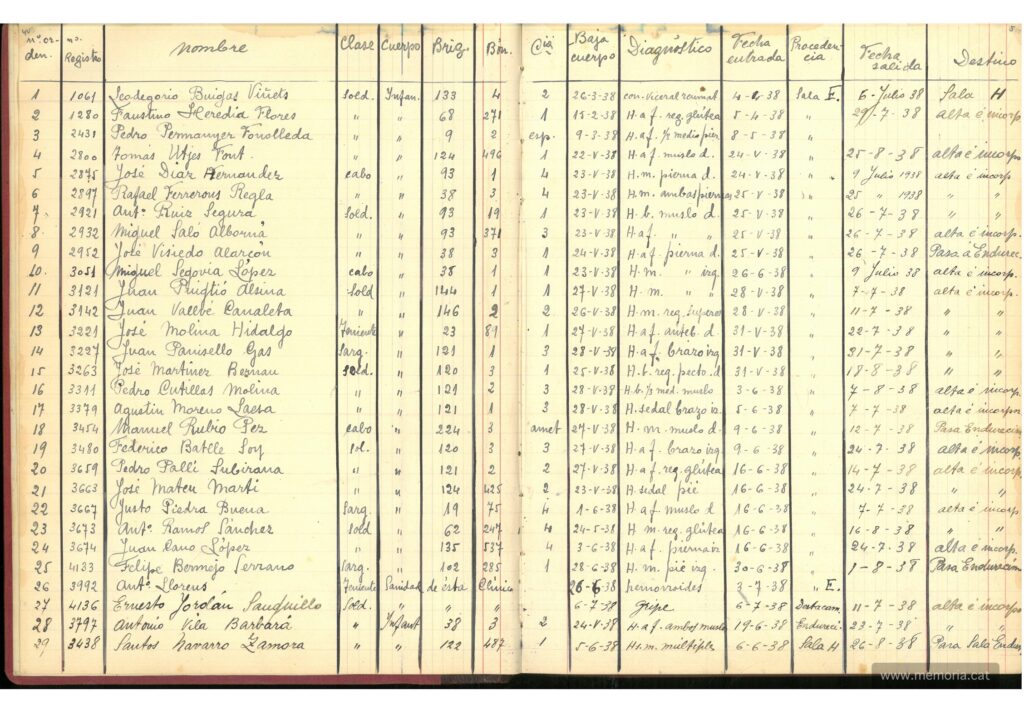 nº or-den. nº Registro nombre Clase Cuerpo Brig. Bón. Cía Baja cuerpo Diagnóstico Fecha entrada Proceden-cia Fecha salida Destino
1 1061 Leodegorio Buigas Viñets Sold. Infan. 133 4 2 26-3-38 con. viceral reumat 4-6-38 Sala E. 6-Julio 38 Sala H
2 1280 Faustino Heredia Flores " " 68 271 1 15-2-38 H. a f. reg. glútea 5-4-38 29-7-38 alta é incorp
3 2431 Pedro Permanyer Fonolleda " " 9 2 esp. 9-3-38 H. a f. ½ medio pier 8-5-38 "
4 2800 Tomás Utjes Font. " " 124 496 1 22-V-38 H. a f. muslo d. 24-V-38 " 25-8-38 alta é incorp
5 2875 José Diaz Hernander cabo " 93 1 4 23-V-38 H. m. pierna d. 24-V-38 " 9 Julio 1938 alta é incorp.
6 2897 Rafael Ferrerous Regla " " 38 3 4 23-V-38 H. m. ambas piernas 25-V-38 " 25 " 1938 " "
7 2921 Antº Ruiz Segura Sold. " 93 19 1 23-V-38 H. b. muslo d. 25-V-38 " 26-7-38 " "
8 2932 Miguel Saló Alborná " " 93 371 3 23-V-38 H. a f. " " 25-V-38 " 26-7-38 alta é incorp.
9 2952 José Visiedo Alarçón " " 38 3 1 24-V-38 H. a f. pierna d. 25-V-38 " 26-7-38 Pasa á Endurec.
10. 3051 Miguel Segovia López cabo " 38 1 1 23-V-38 H. m. " izq. 26-6-38 " 9 Julio 38 alta é incorp.
11 3121 Juan Puigtió Alsina Sold " 144 1 1 27-V-38 H. m. " " 28-V-38 " 7-7-38 alta é incorp.
12 3142 Juan Vallbé Canaleta " " 146 2 2 26-V-38 H. m. reg. supero 28-V-38 " 11-7-38 " "
13 3221 José Molina Hidalgo Teniente " 23 89 1 27-V-38 H. a f. anteb. d. 31-V-38 " 22-7-38 " "
14 3227 Juan Panisello Gas Sarg. " 121 1 3 28-V-38 H. a f. brazo izq 31-V-38 " 21-7-38 " "
15 3263 José Martínez Bernau Sold. " 120 3 1 25-V-38 H. b. reg. pecto. d 31-V-38 " 18-8-38 " "
16 3311 Pedro Cutillas Molina " " 121 2 3 28-V-38 H. b. ½ med. muslo 3-6-38 " 7-8-38 alta é incorp.
17 3379 Agustin Moreno Saesa " " 121 1 3 28-V-38 H. sedal brazo iz. 5-6-38 " 7-7-38 alta é incorp
18 3454 Manuel Rubio Pez cabo " 224 3 amet 27-V-38 H. m. muslo d 9-6-38 " 12-7-38 Pasa Enduración
19 3480 Federico Batlle Soy sol. " 120 3 3 27-V-38 H. a f. brazo izq 9-6-38 " 24-7-38 alta é incorp.
20 3659 Pedro Pallí Subirana " " 121 2 2 27-V-38 H. a f. reg. glútea 16-6-38 " 14-7-38 alta é incorp
21 3663 José Mateu Marti " " 124 425 2 23-V-38 H. sedal pie 16-6-38 " 24-7-38 " "
22 3667 Justo Piedra Buena Sarg. " 19 75 4 1-6-38 H. a f. muslo d 16-6-38 " 7-7-38 " "
23 3673 Antº Ramos Sánchez Sold " 62 247 4 24-5-38 H. m. reg. glútea 16-6-38 " 16-8-38 " "
24 3674 Juan Cano López " " 135 537 4 3-6-38 H. a f. pierna iz 16-6-38 " 24-7-38 alta é incorp.
25 4133 Felipe Bermejo Serrano Sarg. " 102 285 1 28-6-38 H. m. pié izq. 30-6-38 " 1-8-38 Pasa Enduración
26 3992 Antº Lloreus Teniente Sanidad de ésta Clínica 26-6-38 hemoroides 3-7-38 " E.
27 4136 Ernesto Jordán Sauquillo Sold. " " " 6-7-38 gripe 6-7-38 11-7-38 alta é incorp
28 3797 Antonio Vila Barbará " Infant 38 3 2 24-V-38 H. a f. ambos muslo 19-6-38 Endureci. 23-7-38 "
29 3438 Santos Navarro Zamora " " 122 487 1 5-6-38 H. m. múltiple 6-6-38 Sala H 26-8-38 Pasa Sala Endur.
www.memoria.cat